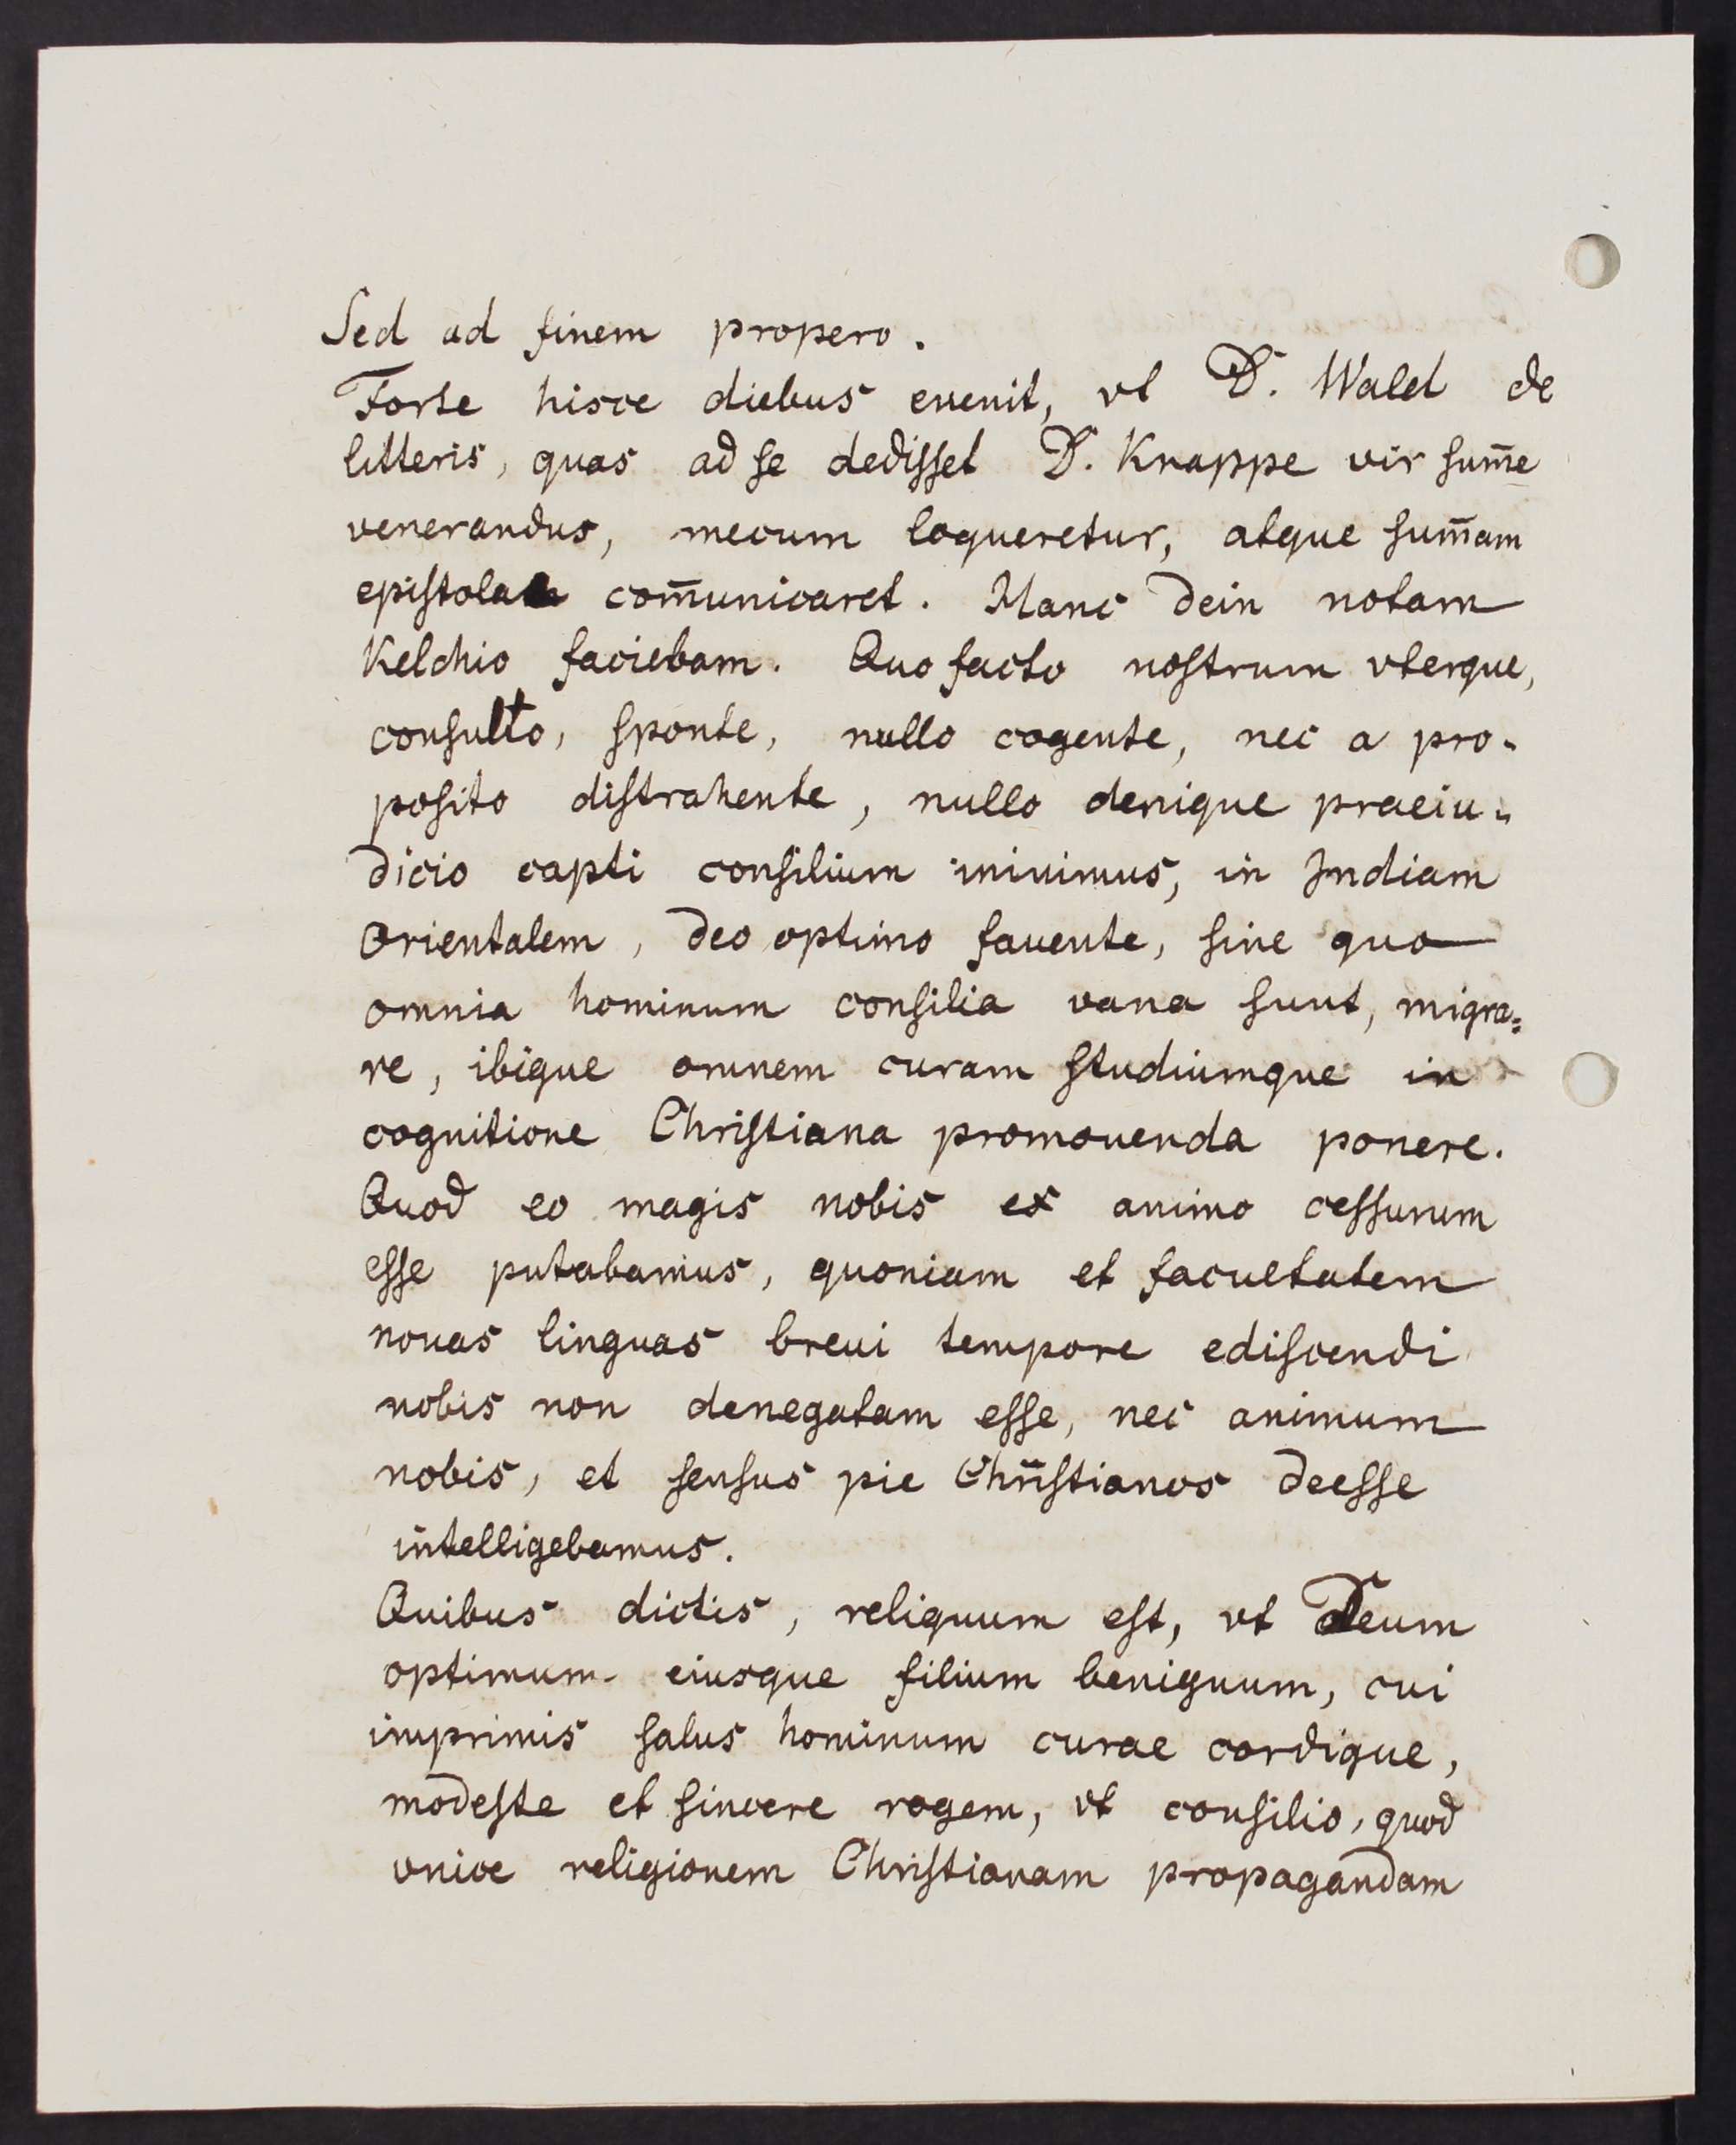 Sed ad finem propero.
Forte hisce diebus euenit, vt D. Wald de
litteris, quas ad se dedisset D. Knappe vir sum̄e
venerandus, mecum loqueretur, atque sum̄am
epistolae com̄unicaret. Hanc dein notam
Kelchio faciebam. Quo facto nostrum vterque,
consulto, sponte, nullo cogente, nec a pro-
posito distrahente, nullo denique praeiu-
dicio capti consilium inimus, in Indiam
Orientalem, deo optimo fauente, sine quo
omnia hominum consilia vana sunt, migra=
re, ibique omnem curam studiumque in
cognitione Christiana promouenda ponere.
Quod eo magis nobis ex animo cessurum
esse putabamus, quoniam et facultatem
nouas linguas breui tempore ediscendi
nobis non denegatam esse, nec animum
nobis, et sensus pie Christianos deesse
intelligebamus.
Quibus dictis, reliquum est, vt Deum
optimum eiusque filium benignum, cui
imprimis salus hominum curae cordique,
modeste et sincere rogem, vt consilio, quod
vnice religionem Christianam propagandam